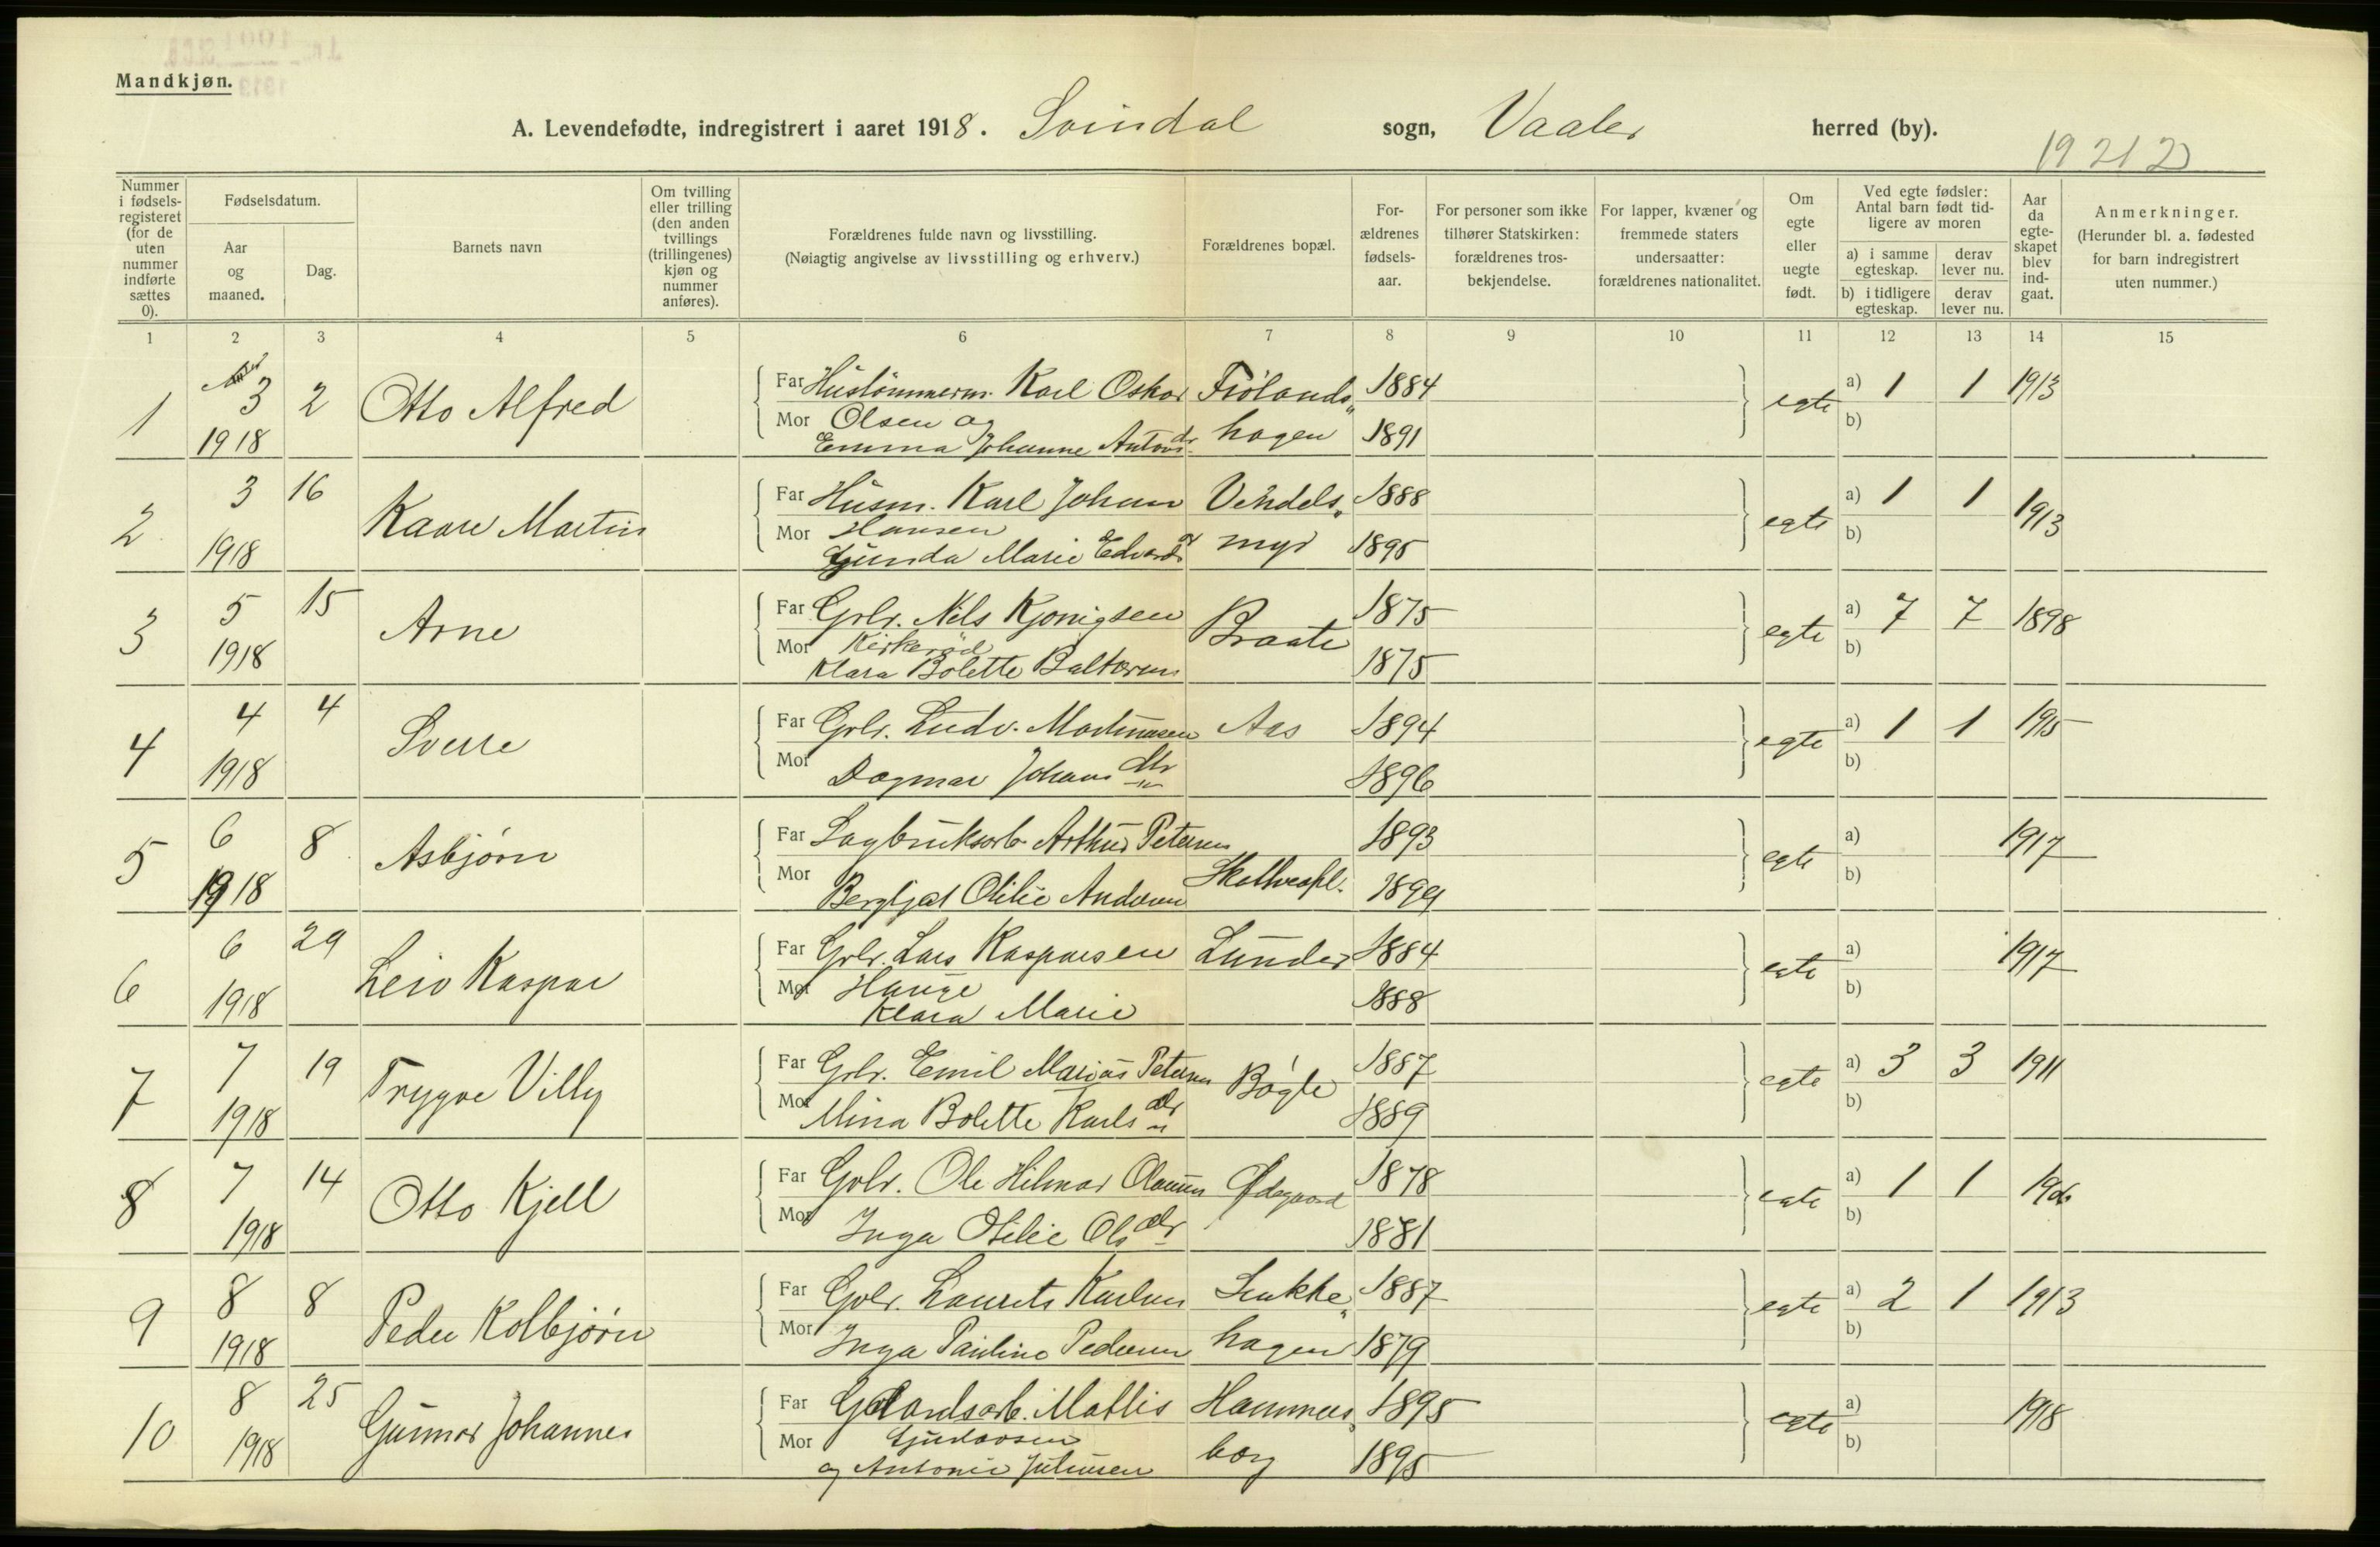 Mandkjøn.
A. Levendefødte, indregistrert i aaret 1918. Svindal sogn, Vaaler herred (by).
19 21 2
Nummer i fødsels-registeret (for de uten nummer indførte sættes 0).
Fødselsdatum.
Aar og maaned.
Dag.
Barnets navn
Om tvilling eller trilling (den anden tvillings (trillingenes) kjøn og nummer anføres).
Forældrenes fulde navn og livsstilling.
(Nøiagtig angivelse av livsstilling og erhverv.)
Forældrenes bopæl.
For-ældrenes fødsels-aar.
For personer som ikke tilhører Statskirken: forældrenes tros-bekjendelse.
For lapper, kvæner og fremmede staters undersaatter: forældrenes nationalitet.
Om egte eller uegte født.
Ved egte fødsler: Antal barn født tid-ligere av moren
a) i samme egteskap.
derav lever nu.
b) i tidligere egteskap.
derav lever nu.
Aar da egte-skapet blev ind-gaat.
Anmerkninger.
(Herunder bl. a. fødested for barn indregistrert uten nummer.)
1 2 3 4 5 6 7 8 9 10 11 12 13 14 15
1 3 1918 2 Otto Alfred
Far Hustømmerm. Karl Oskar Frølands„ 1884
Mor Olsen og
Emma Johanne Antons dr hagen 1891
egte a) 1 1 1913
b)
2 3 1918 16 Kaare Martin
Far Husm. Karl Johan Vendels„ 1888
Mor Hansen
Gunda Marie Edvards myr 1895
egte a) 1 1 1913
b)
3 5 1918 15 Arne
Far Grbr. Nils Kjonigsen Braate 1875
Mor Kirkerød
Klara Bolette Baltersen 1875
egte a) 7 7 1898
b)
4 4 1918 4 Sverre
Far Grbr. Ludv. Martinusen Aas 1894
Mor Dagmar Johans dtr 1896
egte a) 1 1 1915
b)
5 6 1918 8 Asbjørn
Far Sagbruksarb. Arthur Petersen 1893
Mor Bergljot Otilie Andersen 1899
egte a) 1917
b)
6 6 1918 29 Leiv Kaspar
Far Grbr. Lars Kasparsen Lunder 1884
Mor Hauge
Klara Marie 1888
egte a) 1917
b)
7 7 1918 19 Trygve Villy
Far Grbr. Emil Marius Petersen Bøgle 1887
Mor Mina Bolette Karls dtr 1889
egte a) 3 3 1911
b)
8 7 1918 14 Otto Kjell
Far Grbr. Ole Hilmar Olausen Ødegaard 1878
Mor Inga Otilie Ols dtr 1881
egte a) 1 1 1906
b)
9 8 1918 8 Peder Kolbjørn
Far Grbr. Laurits Karlsen 1887
Mor Inga Pauline Pedersen hagen 1879
egte a) 2 1 1913
b)
10 8 1918 25 Gunnar Johannes
Far Gaardsarb. Mathis Hammers„ 1895
Mor Gudevsen
og Antonie Juliussen borg 1895
egte a) 1918
b)